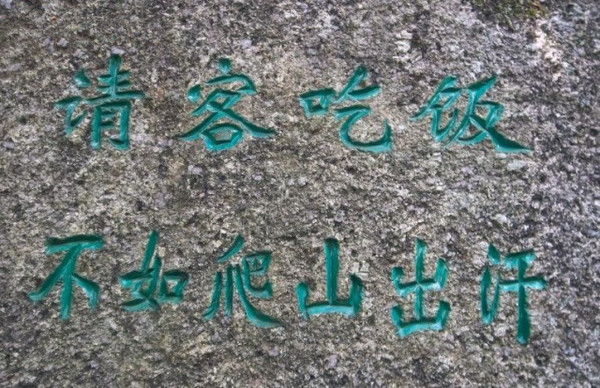 请客吃饭
不如爬山出汗